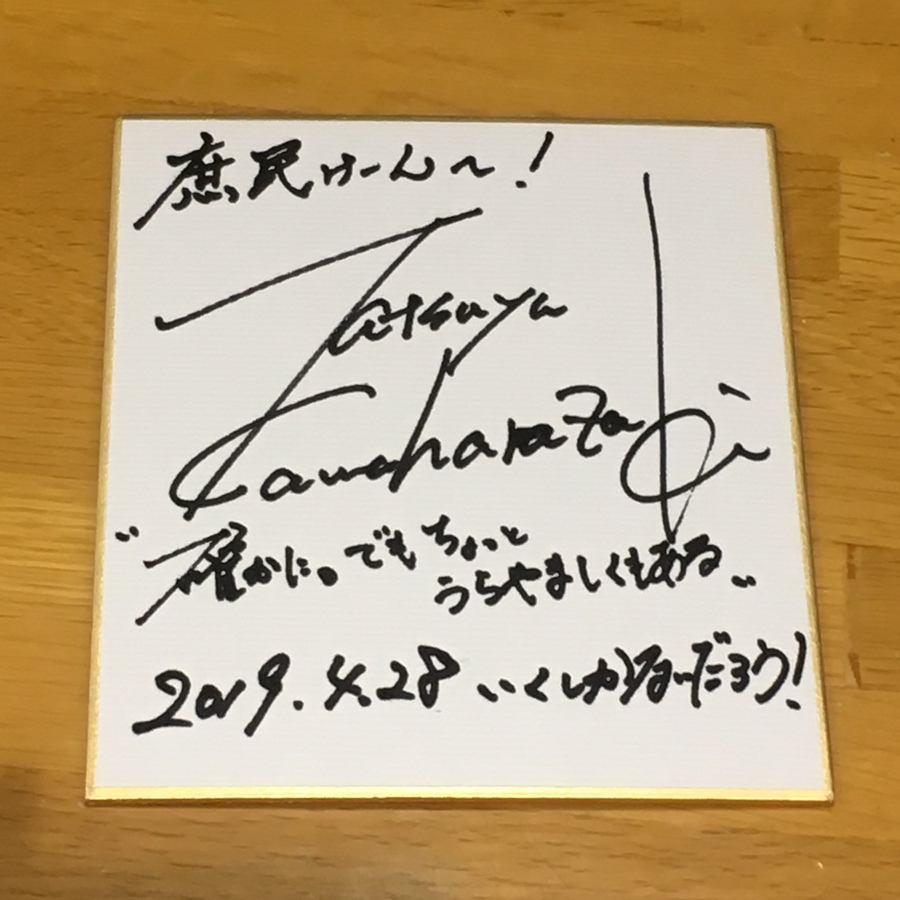 庶民けーん〜!
Tatsuya
Kawaharazaki
"確かに。でもちょっと
うらやましくもある"
2019.4.28 いくしかないだろう!